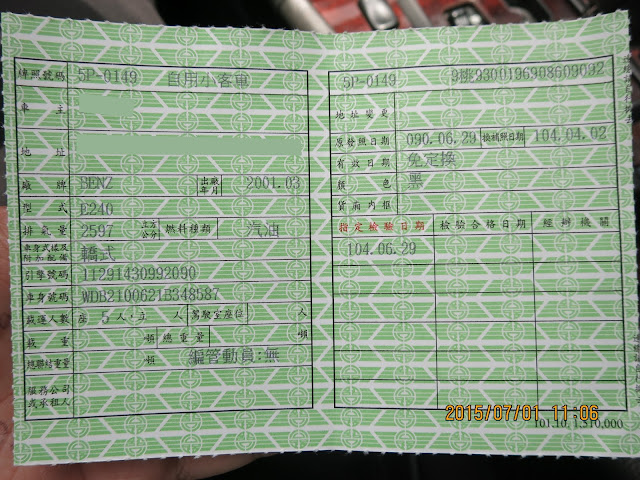 牌照號碼 5P-0149 自用小客車
車主
地址
廠牌 BENZ 出廠年月 2001.03
型式 E240
排氣量 2597 立方公分 燃料種類 汽油
車身式樣及附加配備 轎式
引擎號碼 11291430992090
車身號碼 WDB2100621B348587
載運人數 座 5 人,立 人 駕駛室座位 人
載重 噸 總重量 噸
總聯結重量 噸 編管動員:無
服務公司或承租人
5P-0149 9桃9300196908609092
地址變更
原發照日期 090.06.29 換補照日期 104.04.02
有效日期 免定換
顏色 黑
貨廂內框
指定檢驗日期 檢驗合格日期 經辦機關
104.06.29
2015/07/01 11:06
101.10. 1,510,000